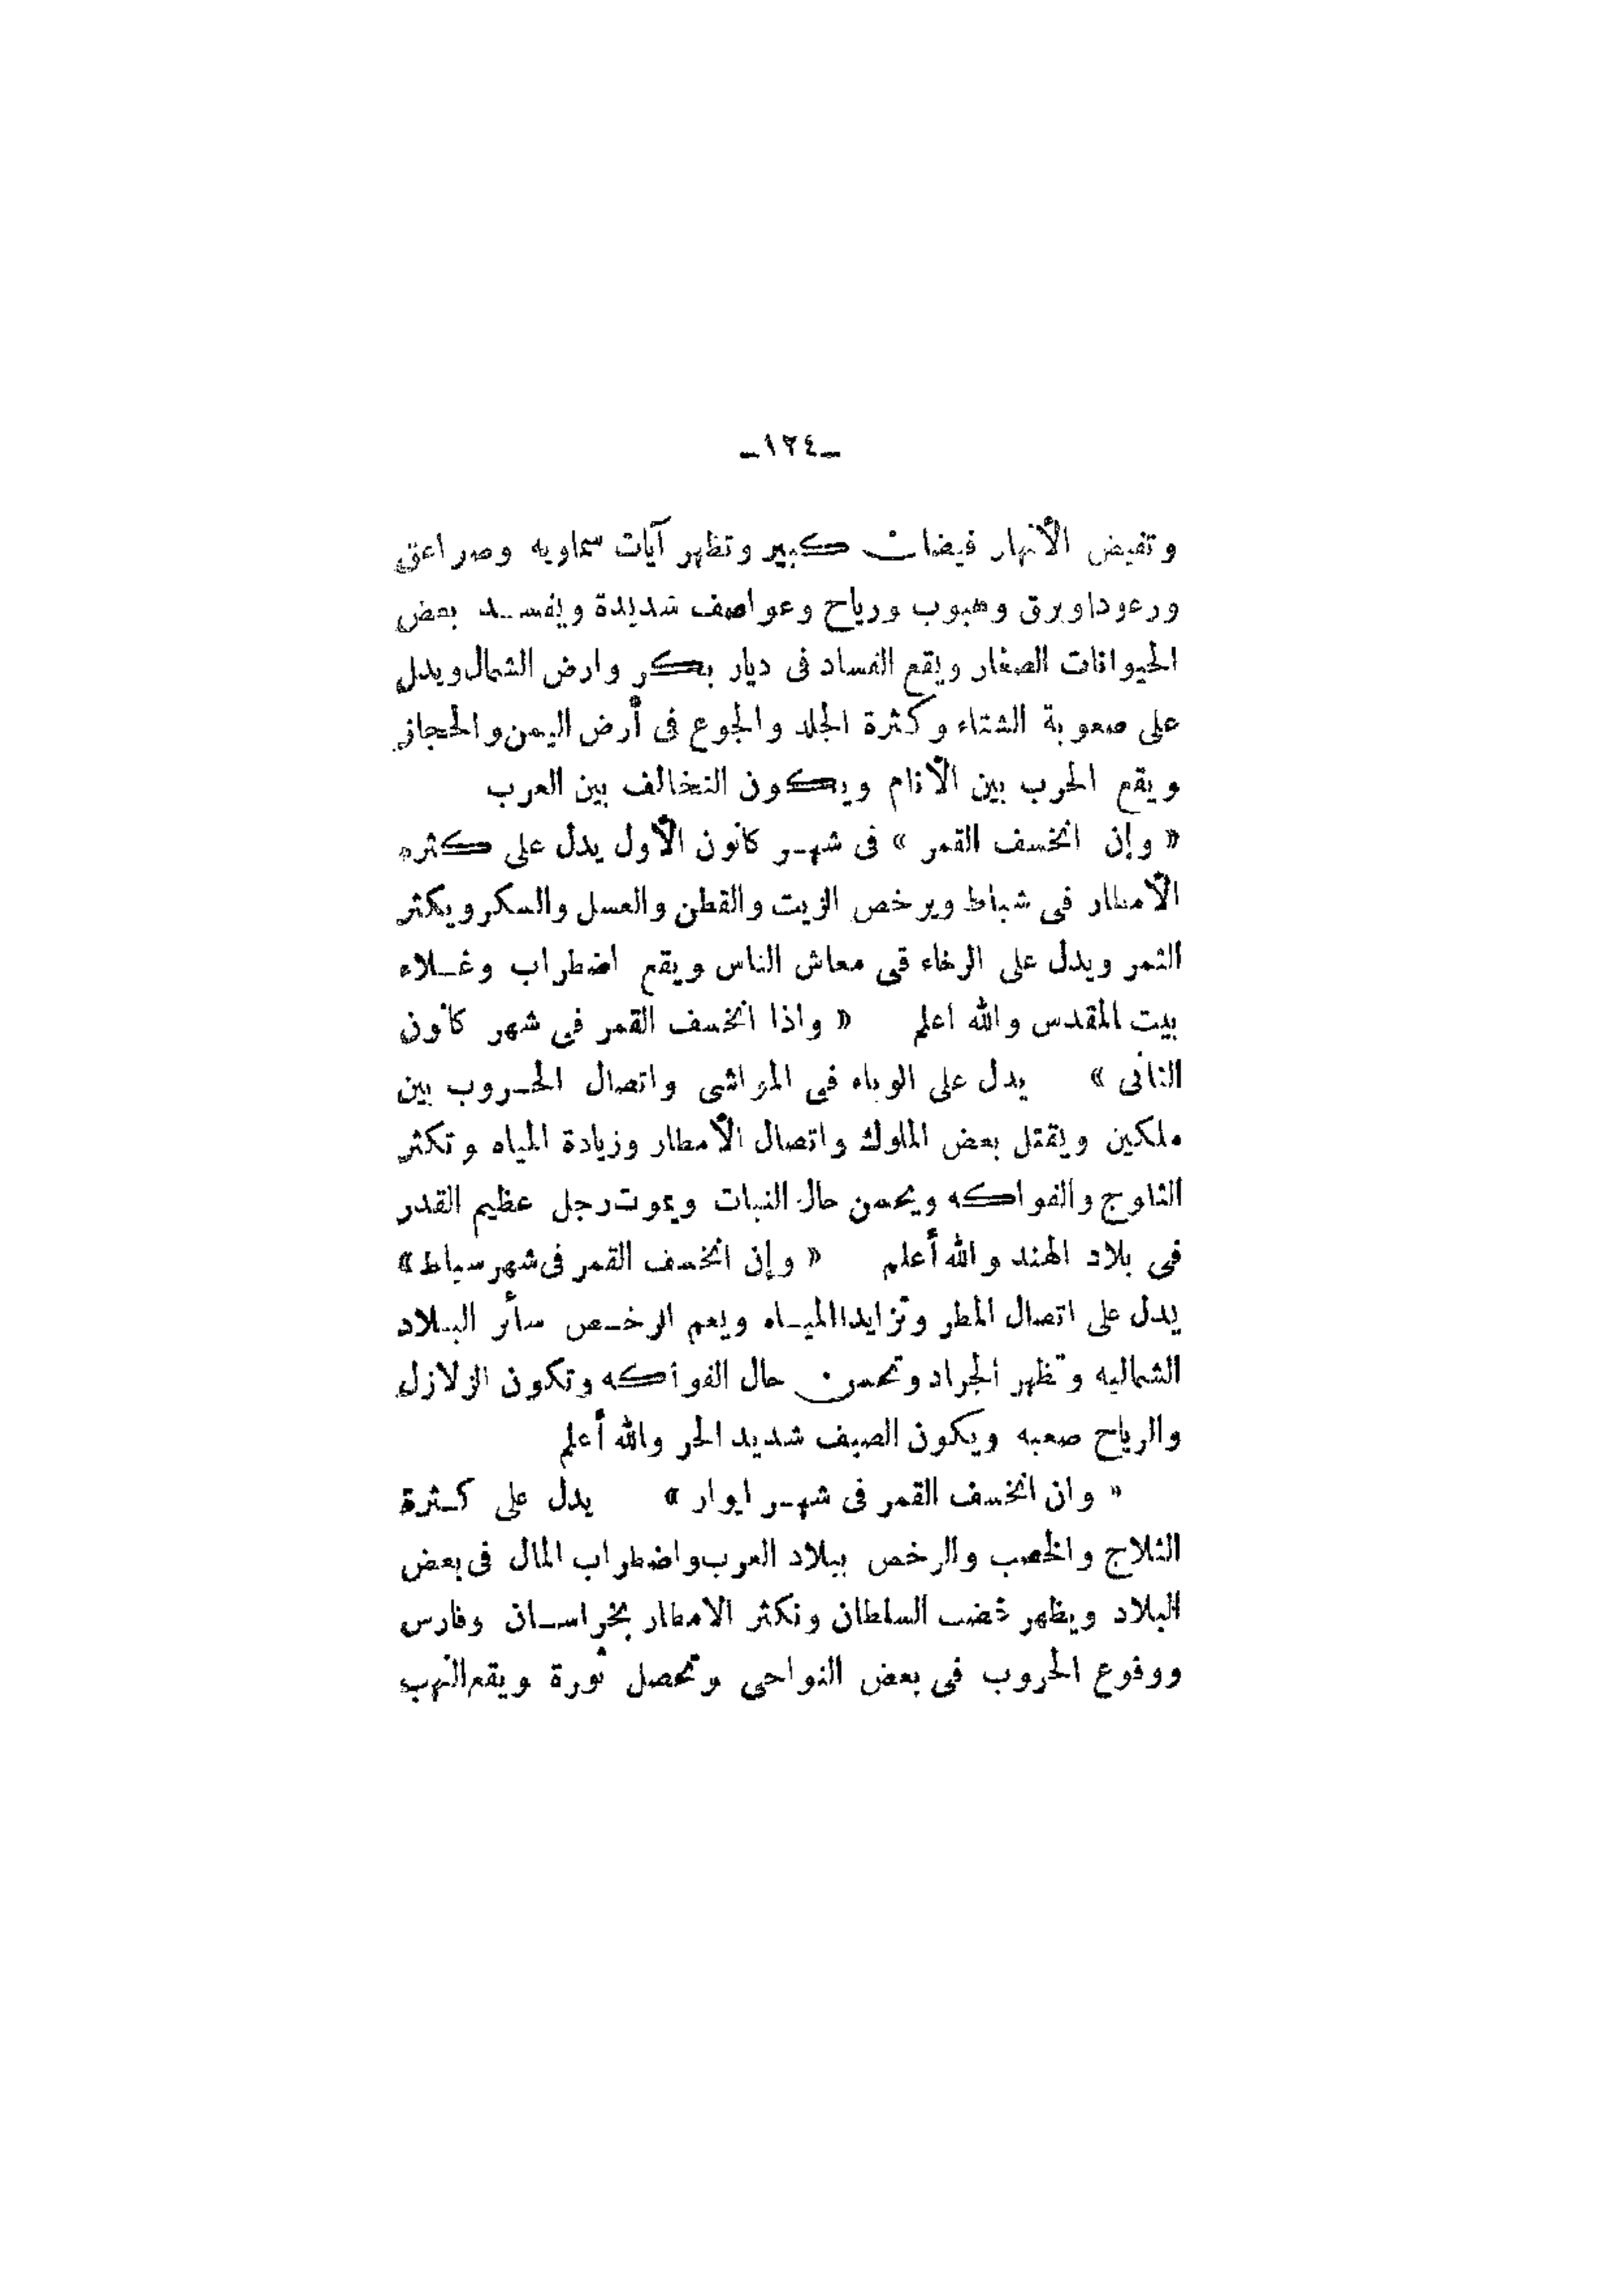 ـ١٢٤ـ
وتفيض الأنهار فيضان كبير وتظهر آيات سماويه وصراعق
ورعوداوبرق وهبوب ورياح وعواصف شديدة ويفسد بعض
الحيوانات الصغار ويقع الفساد فى ديار بكر وارض الشمال ويدل
على صعوبة الشتاء وكثرة الجلد والجوع فى أرض اليمن والحجاز
ويقع الحرب بين الأنام ويكون التخالف بين العرب
« وإن انخسف القمر » فى شهر كانون الأول يدل على كثره
الأمطار فى شباط ويرخص الزيت والقطن والعسل والسكر ويكثر
الثمر ويدل على الرخاء قى معاش الناس ويقع اضطراب وغلاء
بيت المقدس والله اعلم « واذا انخسف القمر فى شهر كانون
الثانى » يدل على الوباء فى المواشى واتصال الحروب بين
ملكين ويقتل بعض الملوك واتصال الأمطار وزيادة المياه وتكثر
الثلوج والفواكه ويحسن حال النبات ويموت رجل عظيم القدر
فى بلاد الهند والله أعلم « وإن انخسف القمر فى شهر سباط »
يدل على اتصال المطر وتزايداالمياه ويعم الرخص سأر البلاد
الشماليه وتظهر الجراد وتحسن حال الفواكه وتكون الزلازل
والرياح صعبه ويكون الصيف شديد الحر والله أعلم
« وان انخسف القمر فى شهر ايوار » يدل على كثرة
الثلاج والخصب والرخص ببلاد العرب واضطراب المال فى بعض
البلاد ويظهر غضب السلطان وتكثر الامطار بخراسان وفارس
ووفوع الحروب فى بعض النواحى وتحصل ثورة ويقع النهب